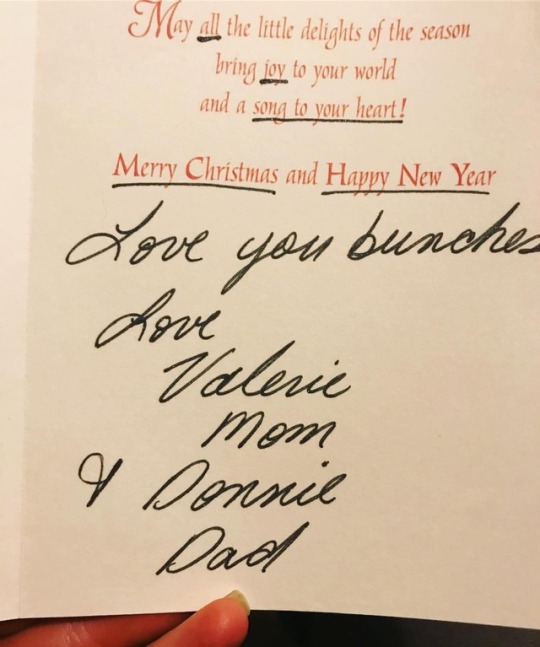 May all the little delights of the season
bring joy to your world
and a song to your heart!
Merry Christmas and Happy New Year
Love you bunches
Love
Valerie
Mom
& Donnie
Dad